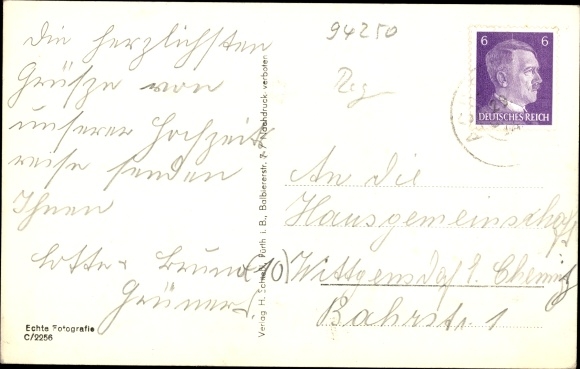 Die herzlichsten
Grüsze von
unserer Hochzeits
reise senden
Ihnen
Lotte + Bruno
Grüner.
Echte Fotografie
C/2256
Verlag H. Fürth i. B., Balbiererstr. 7. * Nachdruck verboten
94250
6 6
DEUTSCHES REICH
An die
Hausgemeinschaft
(10) Wittgensdorf b. Chemnitz
Bahrstr. 1